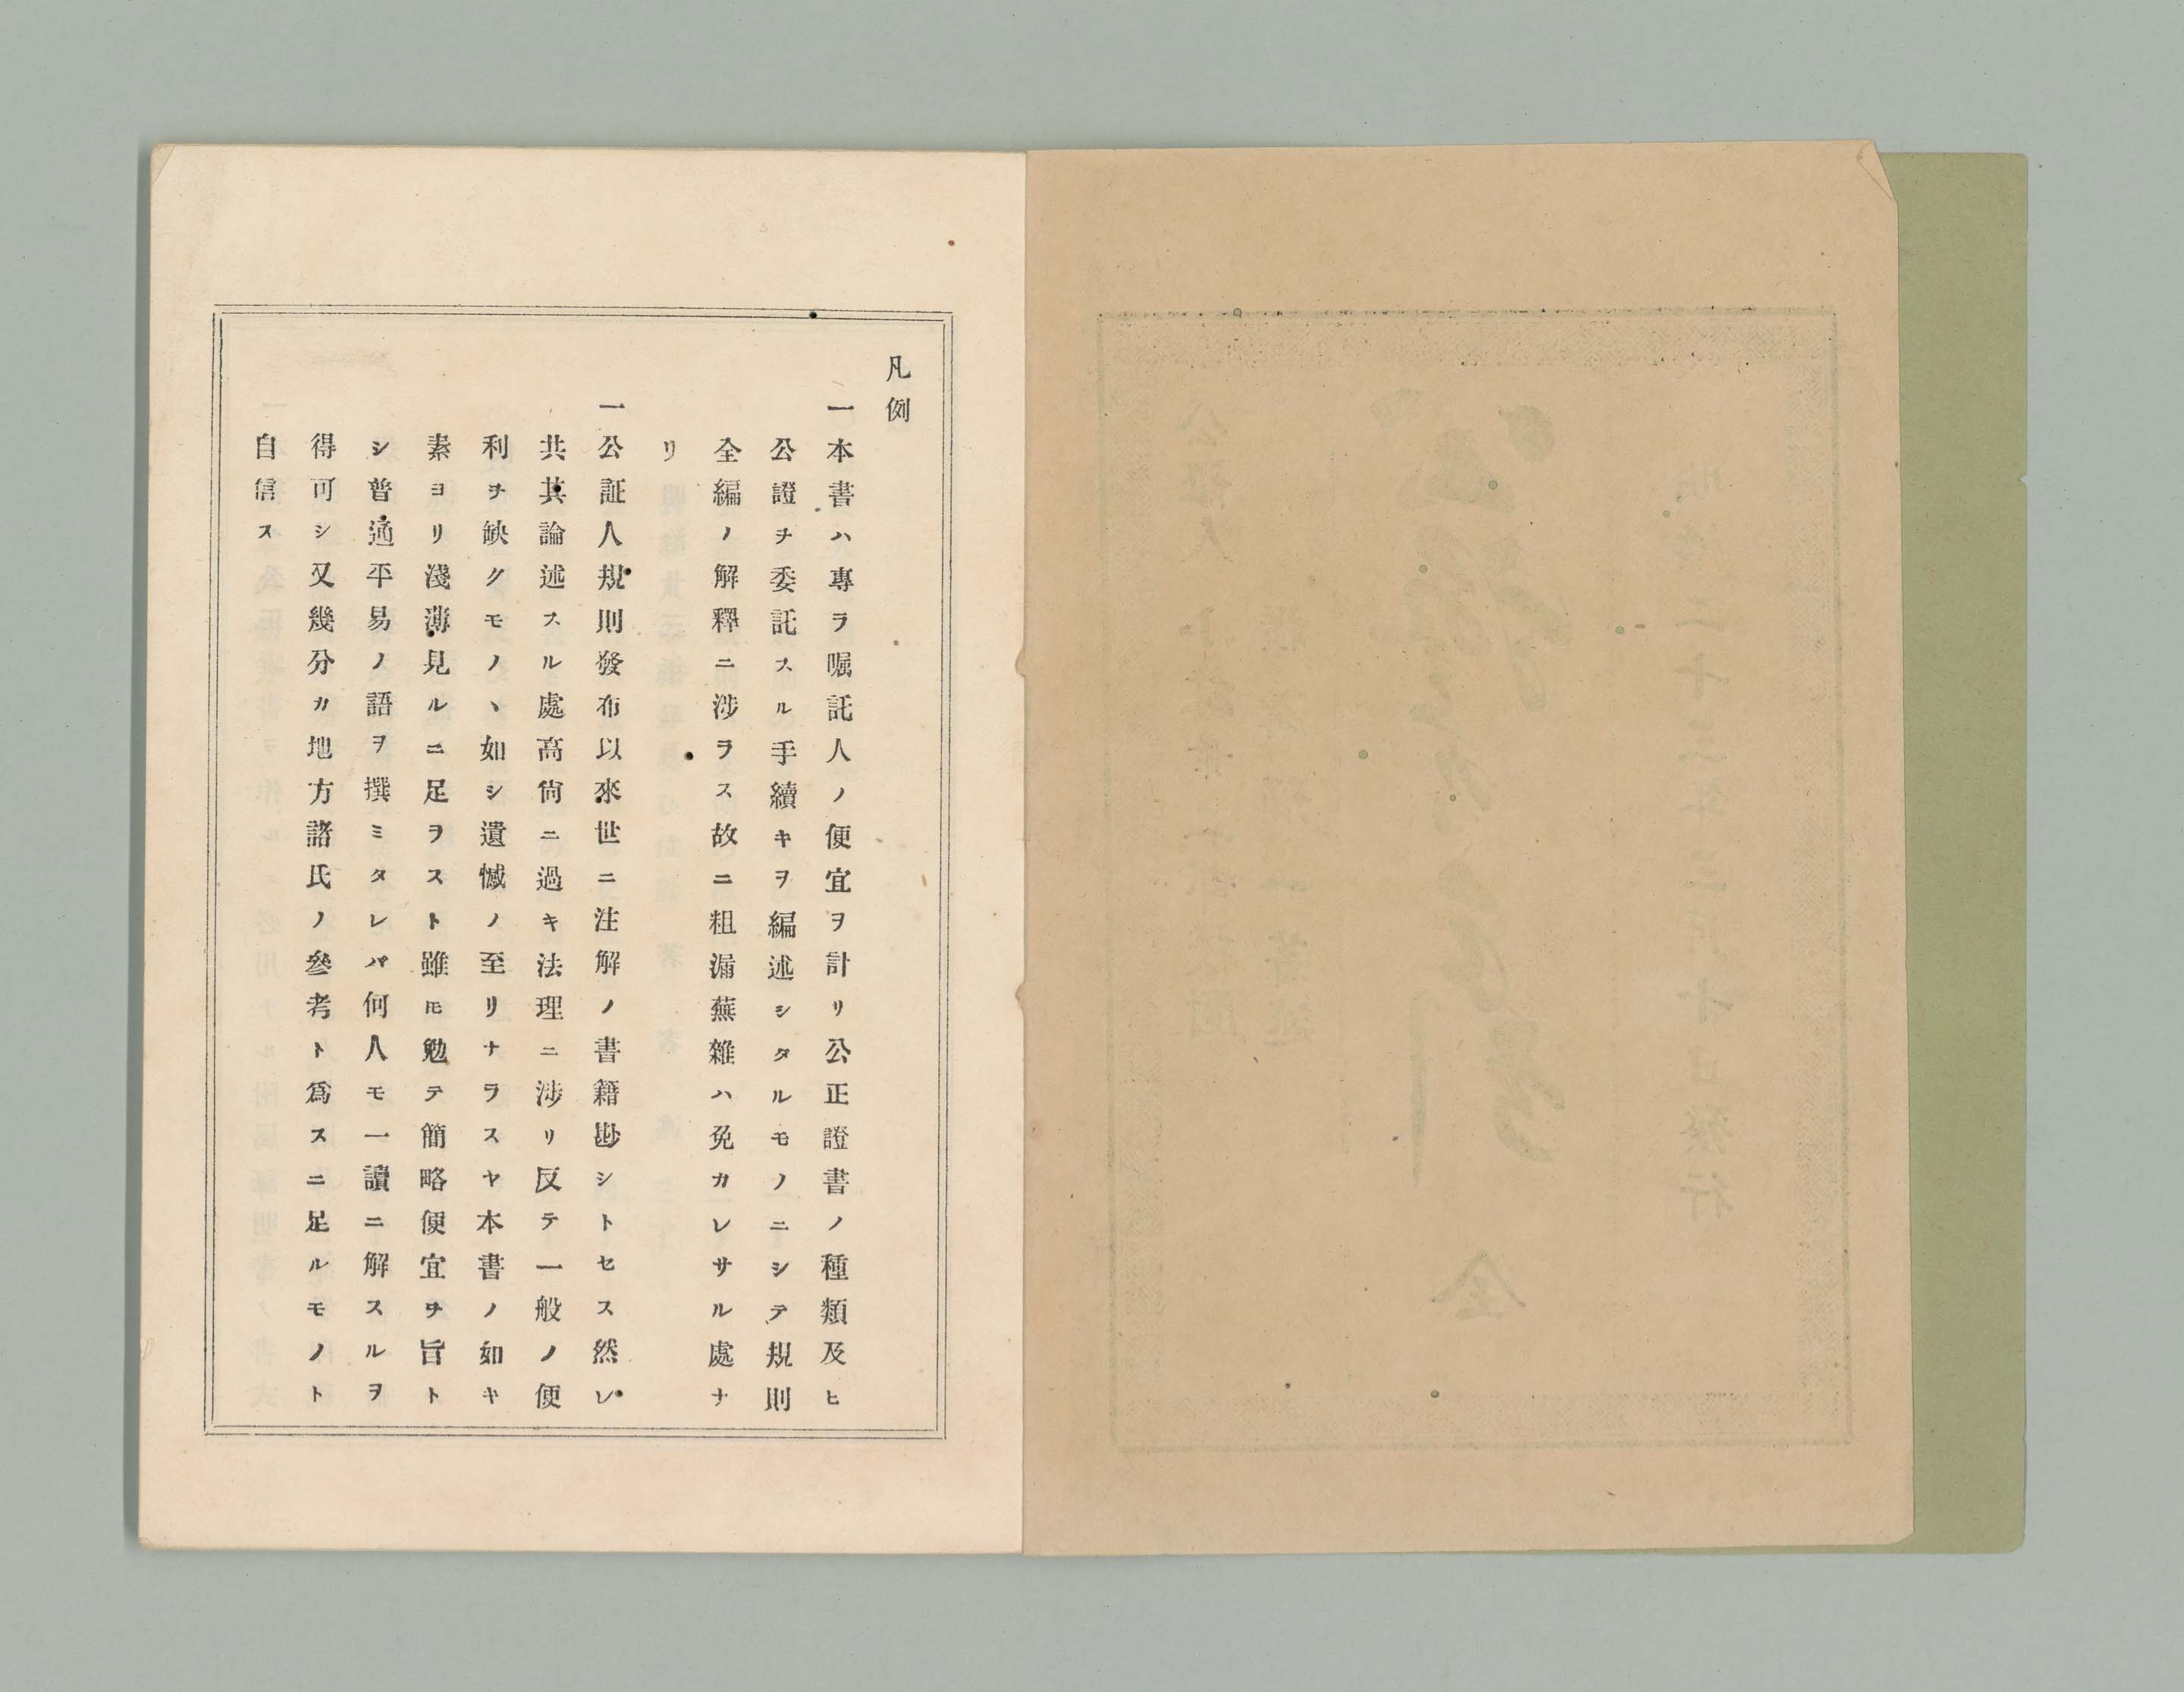 凡例
一本書ハ專ラ嘱託人ノ便宜ヲ計リ公正證書ノ種類及ヒ
公證チ委託スル手續キヲ編述シタルモノニシテ規則
全編ノ解釋ニ涉ラス故ニ粗漏蕪雜ハ免カレサル處ナ
リ
一公証人規則發布以來世ニ注解ノ書籍尠シトセス然レ
共其論述スル處高尙ニ過キ法理ニ涉リ反テ一般ノ便
利チ缺クモノヽ如シ遺憾ノ至リナラスヤ本書ノ如キ
素ヨリ淺薄見ルニ足ヲスト雖𪜈勉テ簡略便宜チ旨ト
シ普通平易ノ語ヲ撰ミタレバ何人モ一讀ニ解スルヲ
得可シ又幾分カ地方諸氏ノ參考ト爲スニ足ルモノト
自信ス